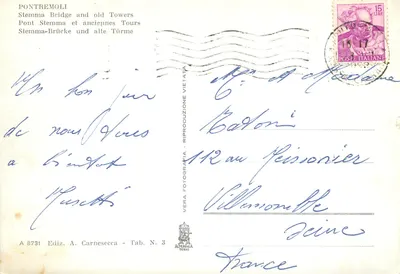 PONTREMOLI
Stemma Bridge and old Towers
Pont Stemma et anciennes Tours
Stemma-Brücke und alte Türme
15
POSTE ITALIANE
Un bon jour
de nous tous
a bientot
Musetti
VERA FOTOGRAFIA - RIPRODUZIONE VIETATA
Mr et Madame
112 au
Villemomble
Seine
France
A 5751 Ediz. A. Carnesecca - Tab. N. 3